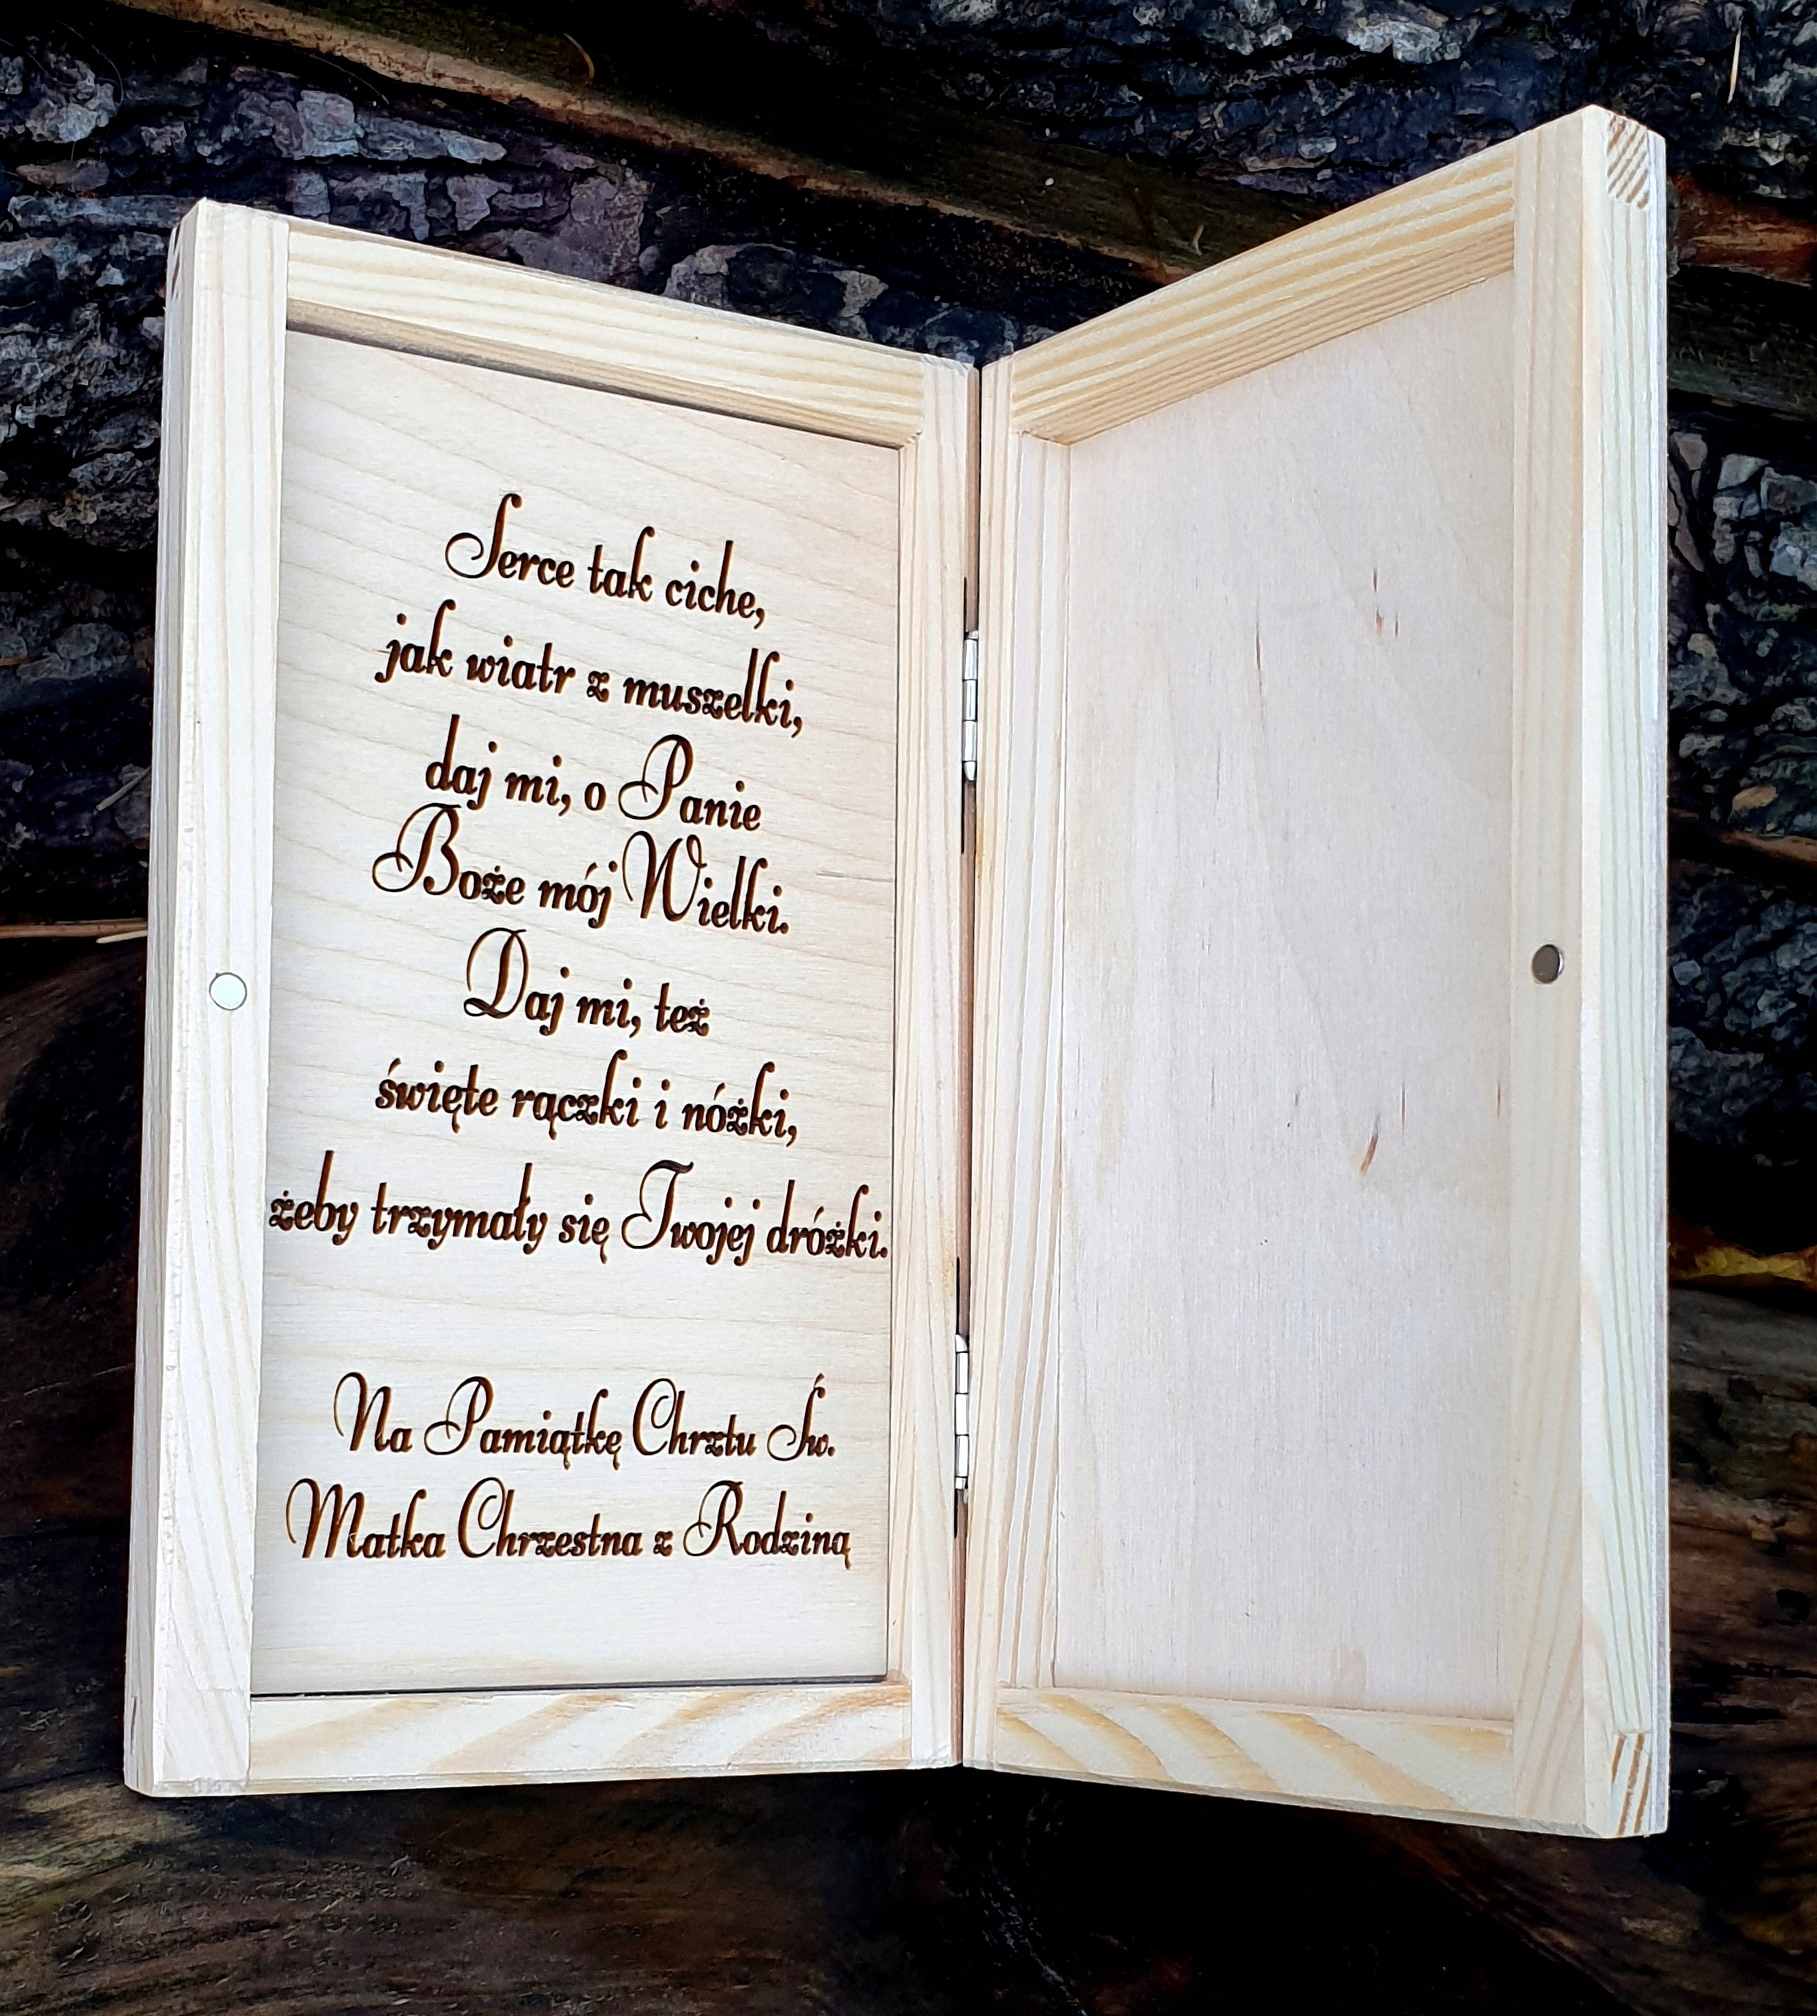 Serce tak ciche,
jak wiatr z muszelki,
daj mi, o Panie
Boże mój Wielki.
Daj mi, też
święte rączki i nóżki,
żeby trzymały się Twojej dróżki.
Na Pamiątkę Chrztu Św.
Matka Chrzestna z Rodziną